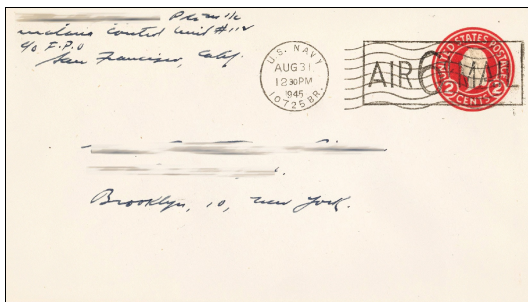 PhoM 1/c
malaria Control Unit #112
c/o F.P.O
San Francisco, Calif.
U.S. NAVY
AUG 31
12 30 PM
1945
10725 BR.
AIR 6¢ MAIL
UNITED STATES POSTAGE
2 CENTS 2
Brooklyn, 10, New York.